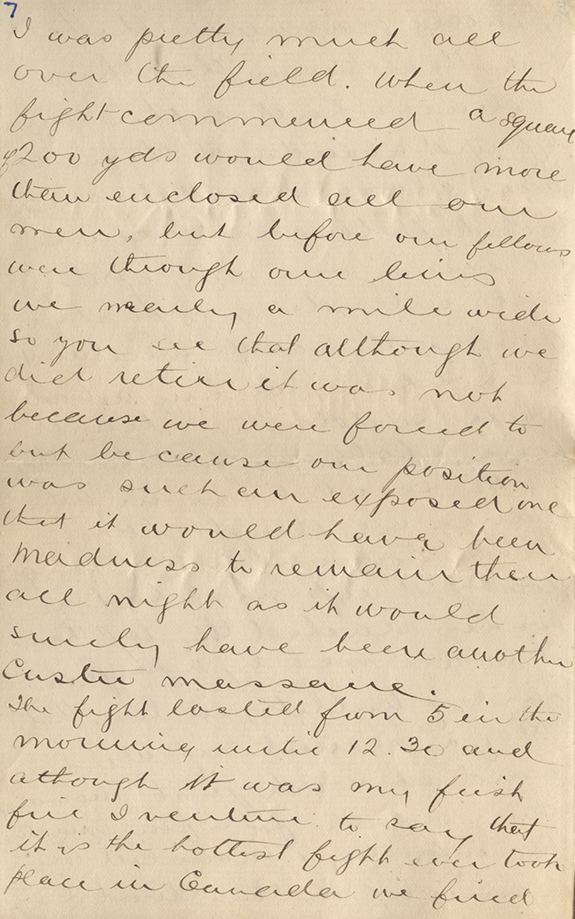 7
I was pretty much all
over the field. When the
fight commenced a square
of 200 yds would have more
than enclosed all our
men, but before our fellows
were through our lines
we nearly a mile wide
so you see that although we
did retire it was not
because we were forced to
but because our position
was such an exposed one
that it would have been
madness to remain there
all night as it would
surely have been another
Custer massacre.
The fight lasted from 5 in the
morning until 12.30 and
although it was my first
fire I venture to say that
it is the hottest fight ever took
place in Canada we fired